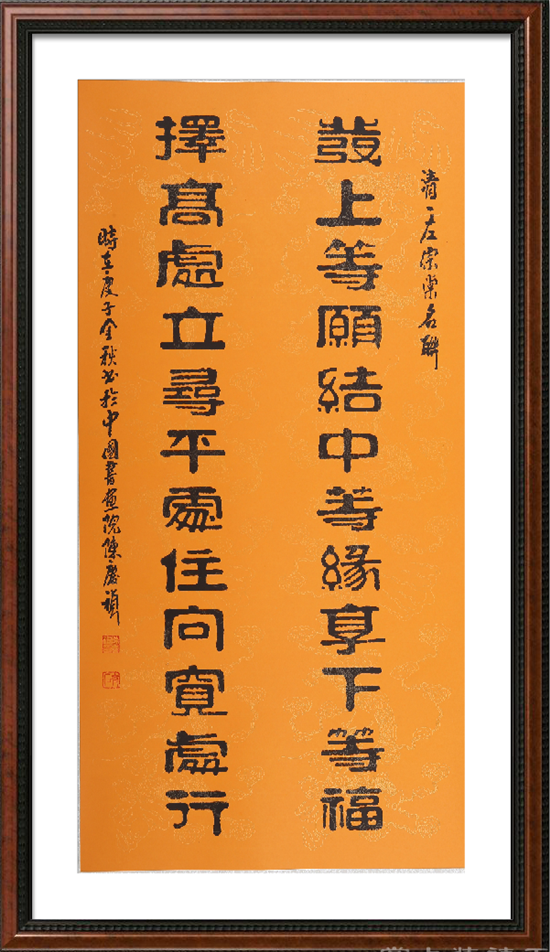 清左宗棠名聯
發上等願結中等緣享下等福
擇高處立尋平處住向寬處行
時在庚子金秋書於中國書畫院陳慶禎